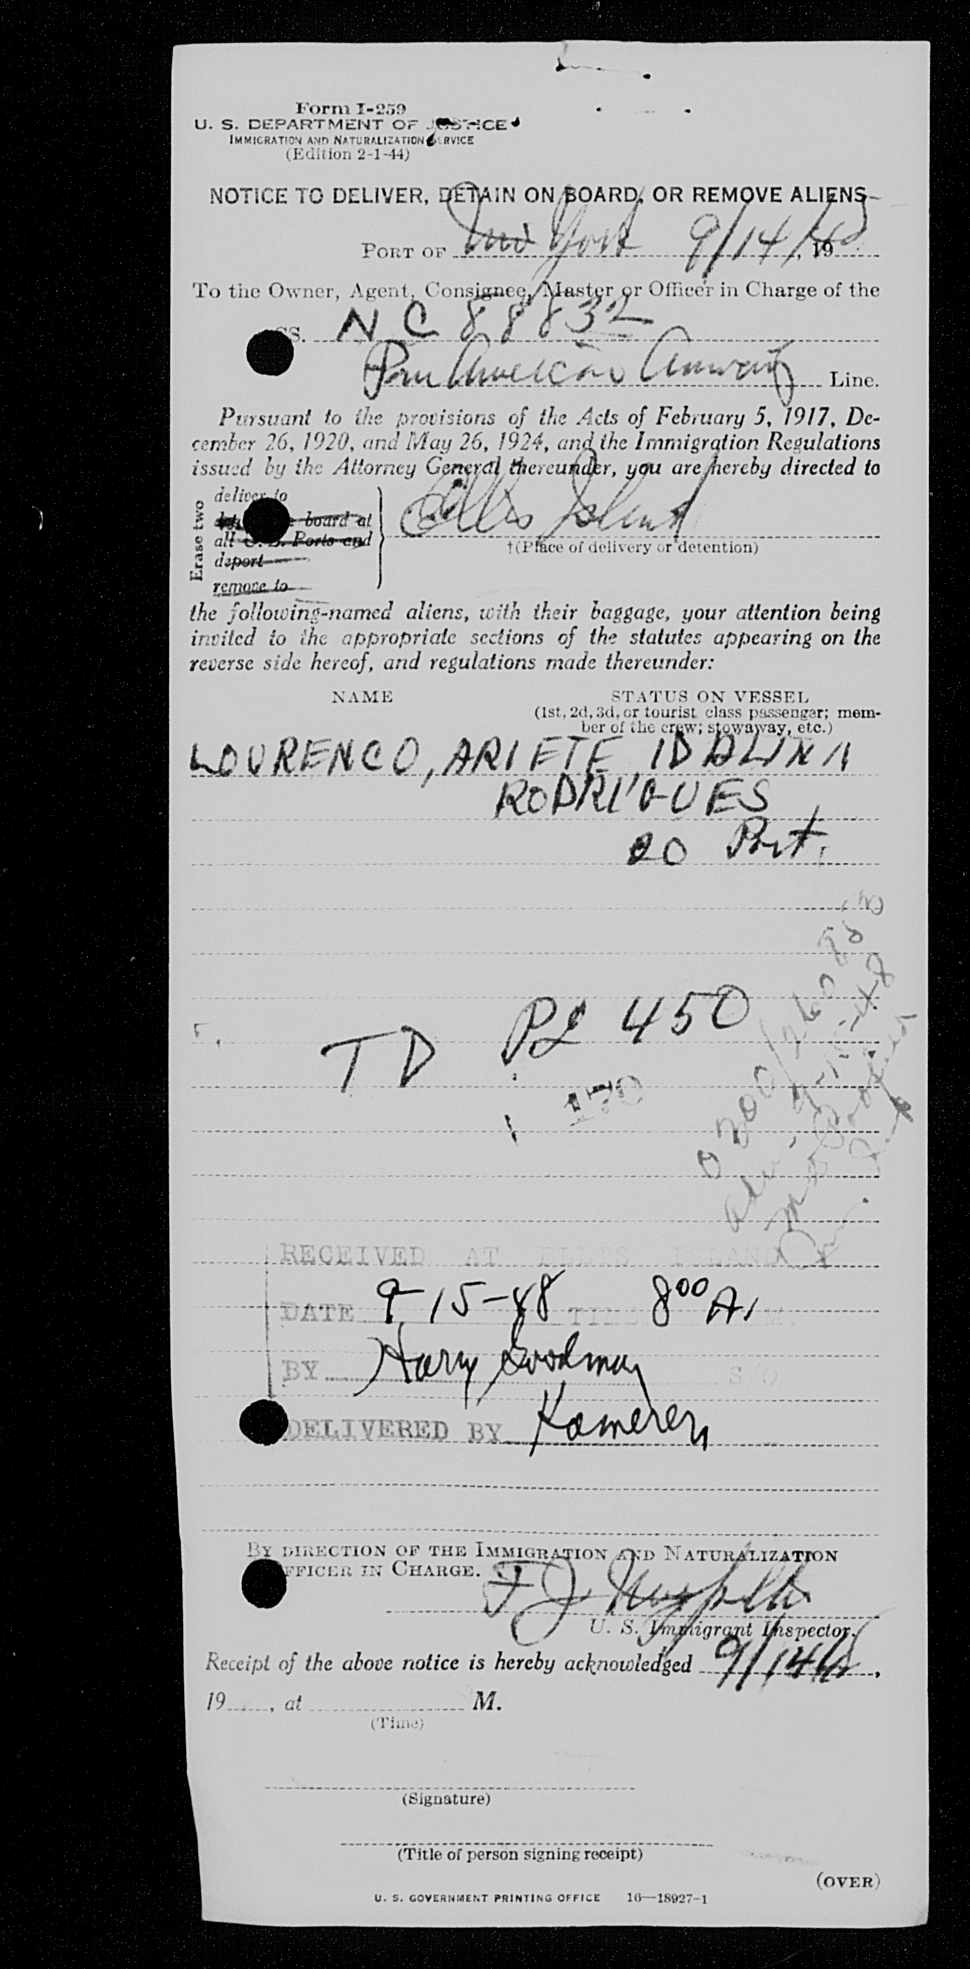 Form I-259
U. S. DEPARTMENT OF JUSTICE
IMMIGRATION AND NATURALIZATION SERVICE
(Edition 2-1-44)
NOTICE TO DELIVER, DETAIN ON BOARD, OR REMOVE ALIENS
PORT OF New York 9/14/48, 19
To the Owner, Agent, Consignee, Master or Officer in Charge of the
SS. NC 88832
Pan American Airways Line.
Pursuant to the provisions of the Acts of February 5, 1917, De-
cember 26, 1920, and May 26, 1924, and the Immigration Regulations
issued by the Attorney General thereunder, you are hereby directed to
Erase two
deliver to
board at
all U. S. Ports and
deport
remove to
Ellis Island
†(Place of delivery or detention)
the following-named aliens, with their baggage, your attention being
invited to the appropriate sections of the statutes appearing on the
reverse side hereof, and regulations made thereunder:
NAME STATUS ON VESSEL
(1st, 2d, 3d, or tourist class passenger; mem-
ber of the crew; stowaway, etc.)
LOURENCO, ARIETE IDALINA
RODRIGUES
20 Port.
TD P2 450
0300/260858
9-15-48
RECEIVED AT ELLIS ISLAND
DATE 9-15-48 TIME 8 00 A. M.
BY Harry Goodman S/O
DELIVERED BY Kamerer
BY DIRECTION OF THE IMMIGRATION AND NATURALIZATION
OFFICER IN CHARGE.
F J
U. S. Immigrant Inspector.
Receipt of the above notice is hereby acknowledged 9/14/48,
19, at M.
(Time)
(Signature)
(Title of person signing receipt)
(OVER)
U. S. GOVERNMENT PRINTING OFFICE 16—18927-1